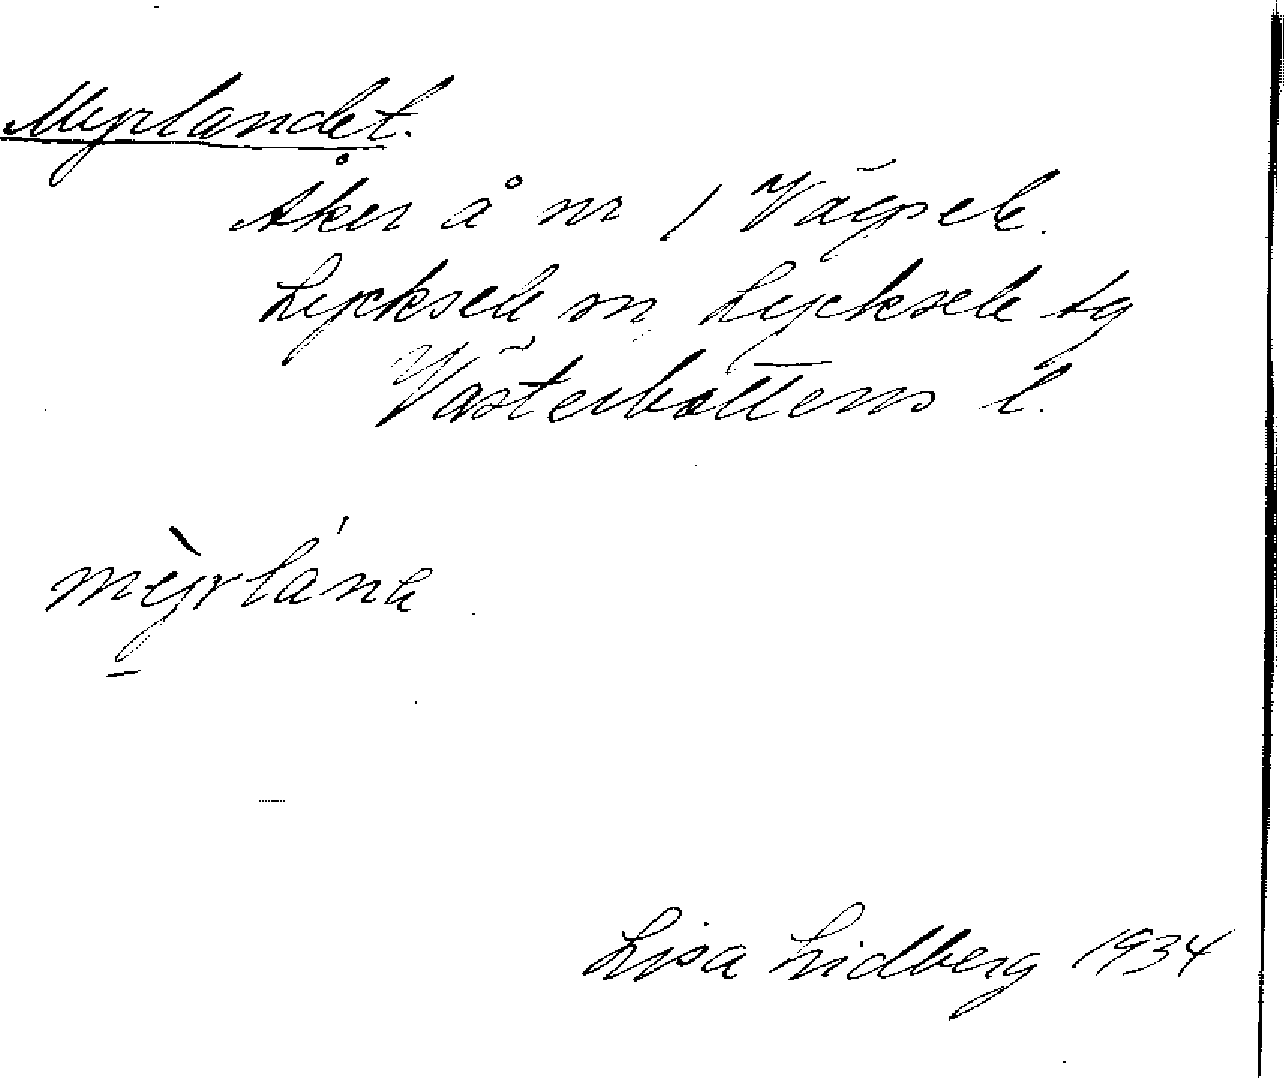 Myrlandet.
Åker å nr 1 Vägsele.
Lycksele sn, Lycksele tg
Västerbottens l.
mỳrlána
Lisa Lidberg 1934